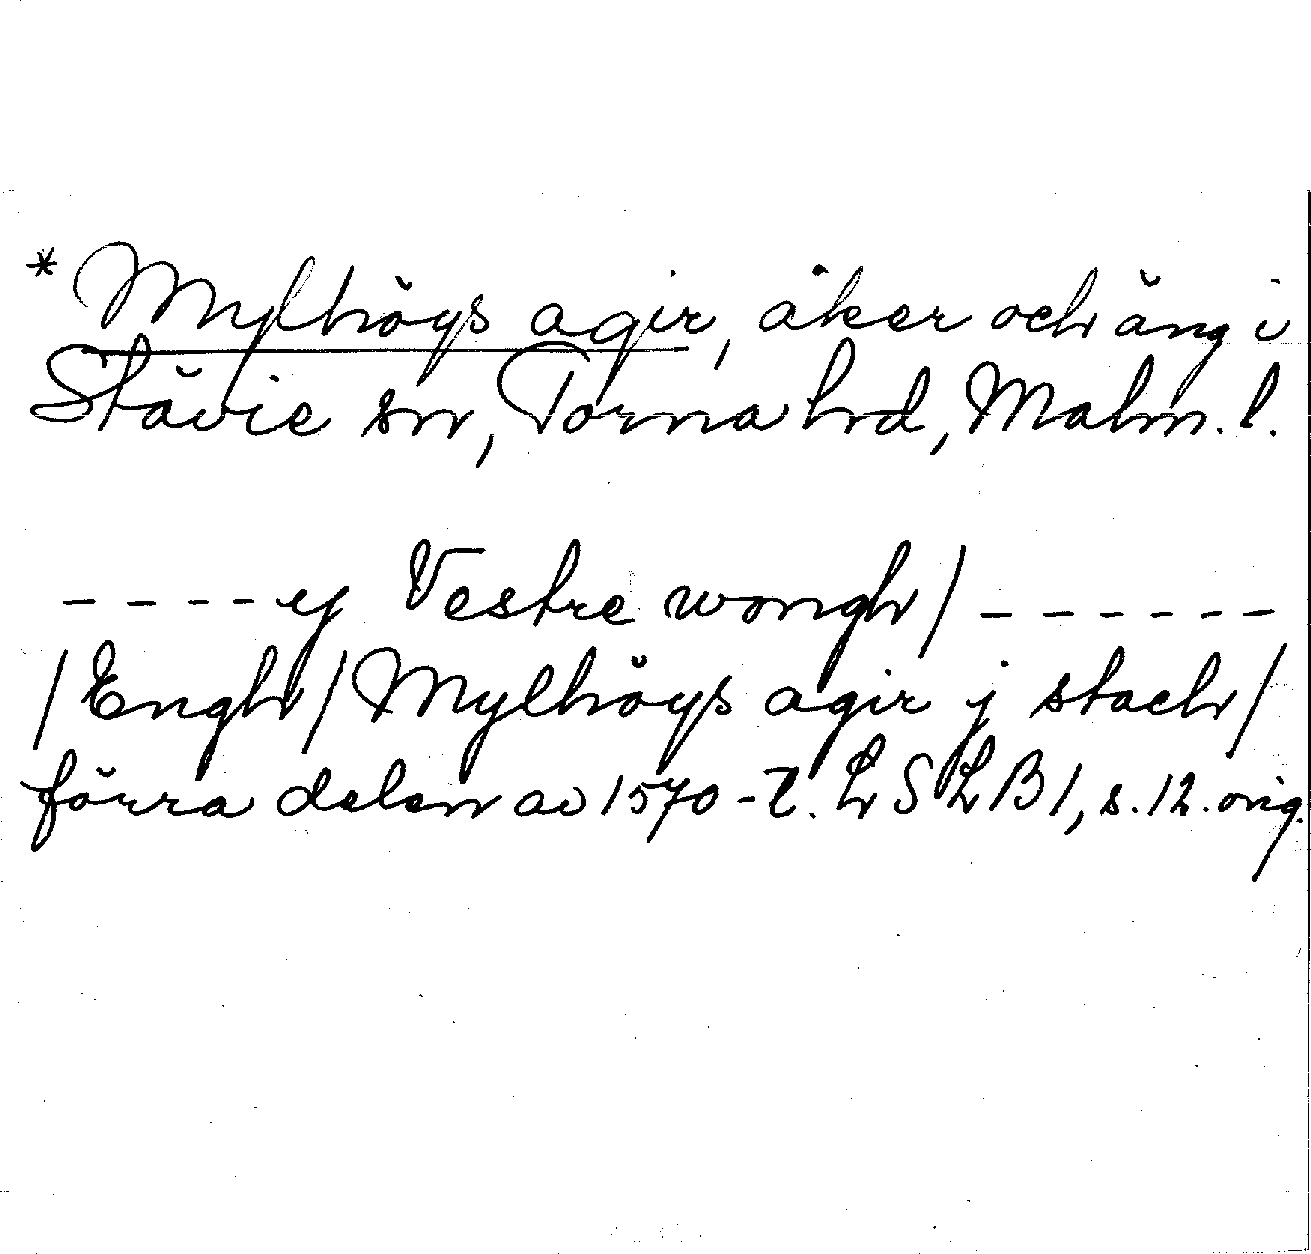 * Mylhöys agir, åker och äng i
Stävie sn, Torna hrd, Malm. l.
----ey Vestre wongh/------
/Engh/Mylhöys agir j stach/
förra delen av 1570-t. LSLB1, s.12. orig.